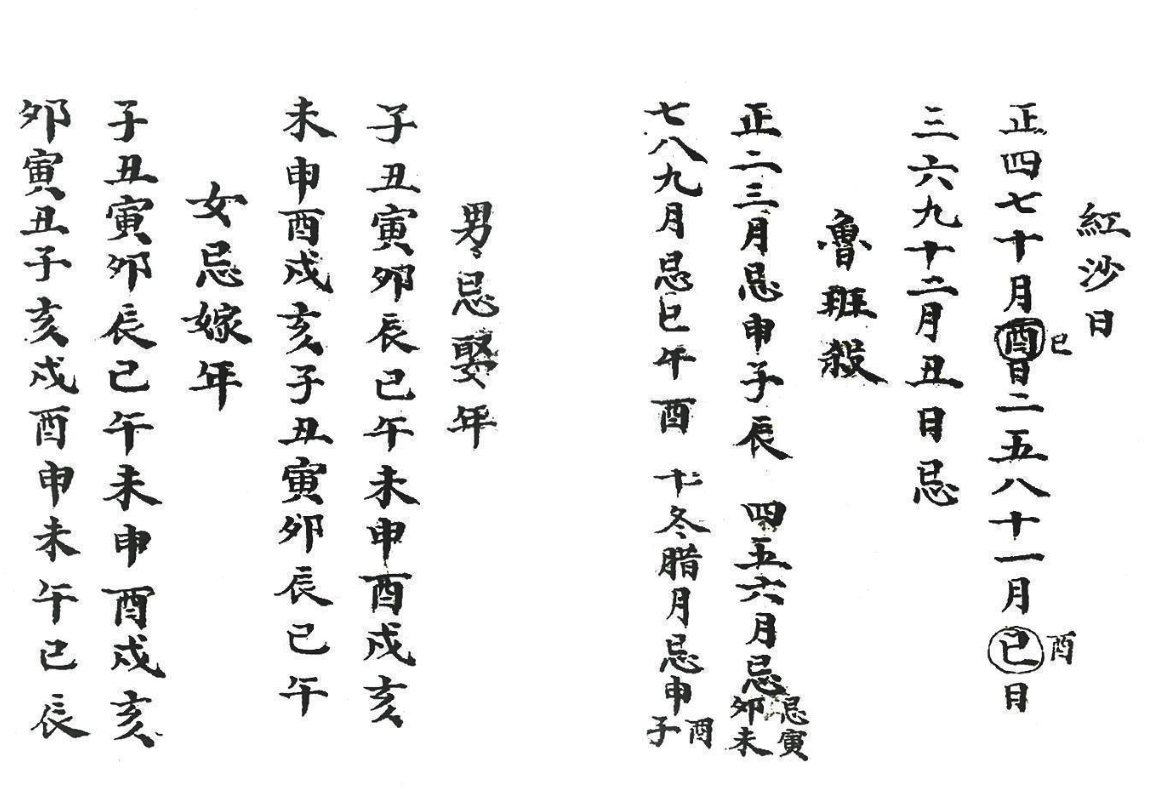 紅沙日
正四七十月酉日二五八十一月巳日
巳
酉
三六九十二月丑日忌
魯班殺
正二三月忌申子辰 四五六月忌
忌寅
卯未
七八九月忌巳午酉 十冬腊月忌申
酉
子
男忌娶年
子丑寅卯辰巳午未申酉戍亥
未申酉戍亥子丑寅卯辰巳午
女忌嫁年
子丑寅卯辰巳午未申酉戍亥
卯寅丑子亥戍酉申未午巳辰